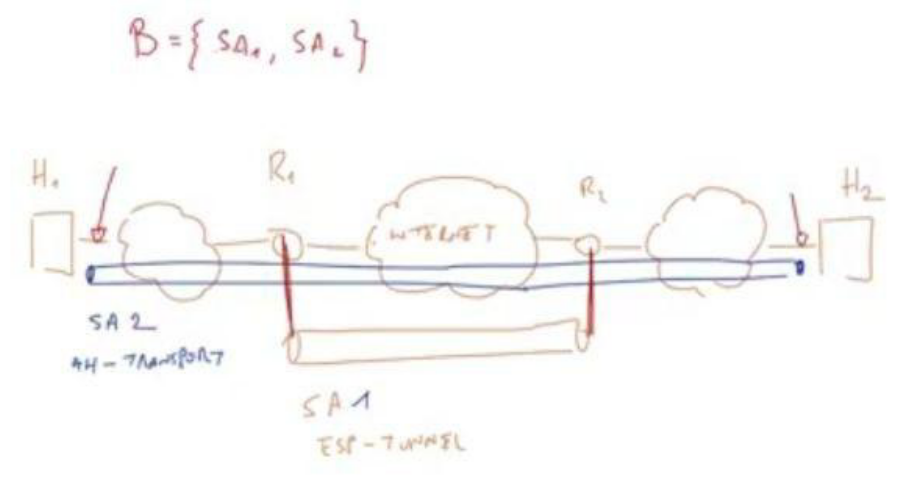 B = { SA1, SA2 }
H1
R1
R2
H2
INTERNET
SA2
AH-TRANSPORT
SA1
ESP-TUNNEL